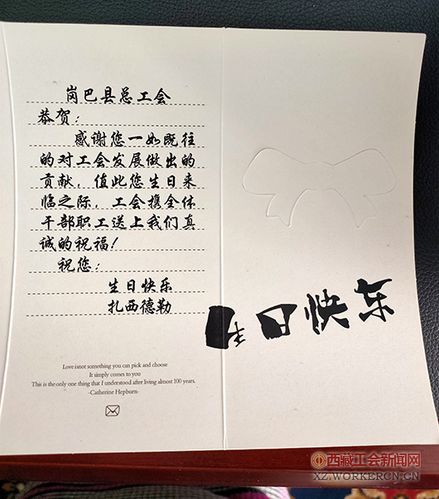 岗巴县总工会
恭贺：
感谢您一如既往
的对工会发展做出的
贡献，值此您生日来
临之际，工会携全体
干部职工送上我们真
诚的祝福！
祝您：
生日快乐
扎西德勒
Love isnot something you can pick and choose
It simply comes to you
This is the only one thing that I understood after living almost 100 years.
-Catherine Hepburn
日快乐
西藏工会新闻网
XZ.WORKERCN.CN